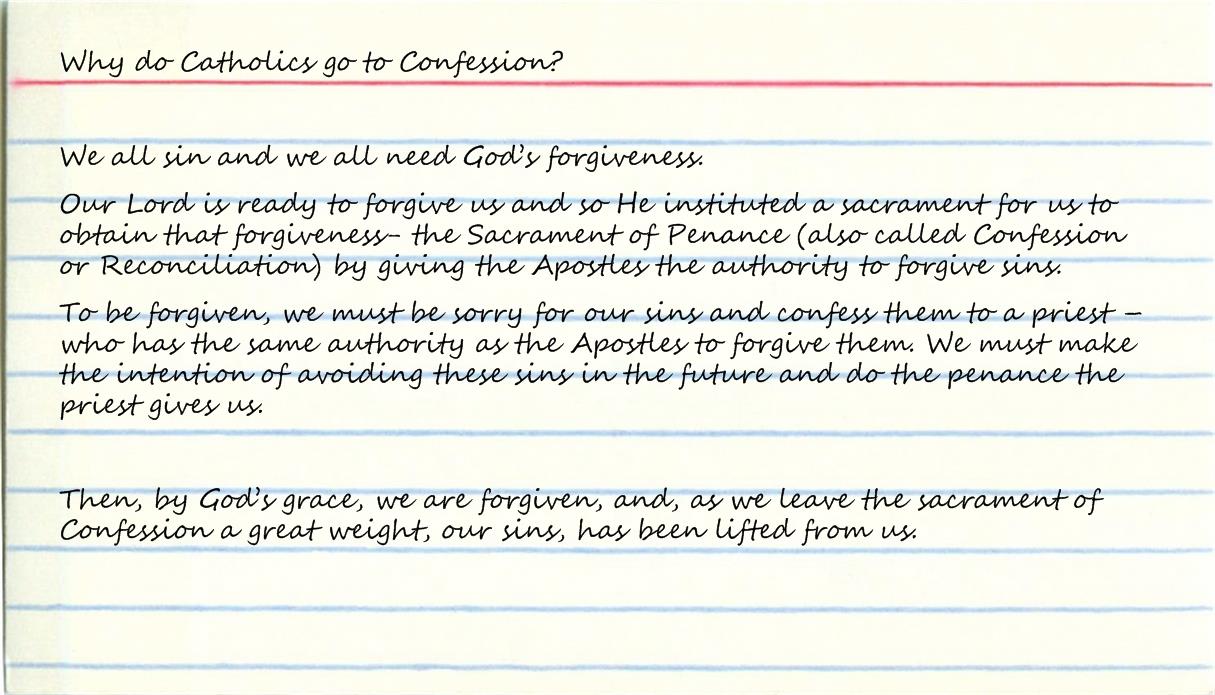 Why do Catholics go to Confession?
We all sin and we all need God's forgiveness.
Our Lord is ready to forgive us and so He instituted a sacrament for us to
obtain that forgiveness– the Sacrament of Penance (also called Confession
or Reconciliation) by giving the Apostles the authority to forgive sins.
To be forgiven, we must be sorry for our sins and confess them to a priest –
who has the same authority as the Apostles to forgive them. We must make
the intention of avoiding these sins in the future and do the penance the
priest gives us.
Then, by God's grace, we are forgiven, and, as we leave the sacrament of
Confession a great weight, our sins, has been lifted from us.